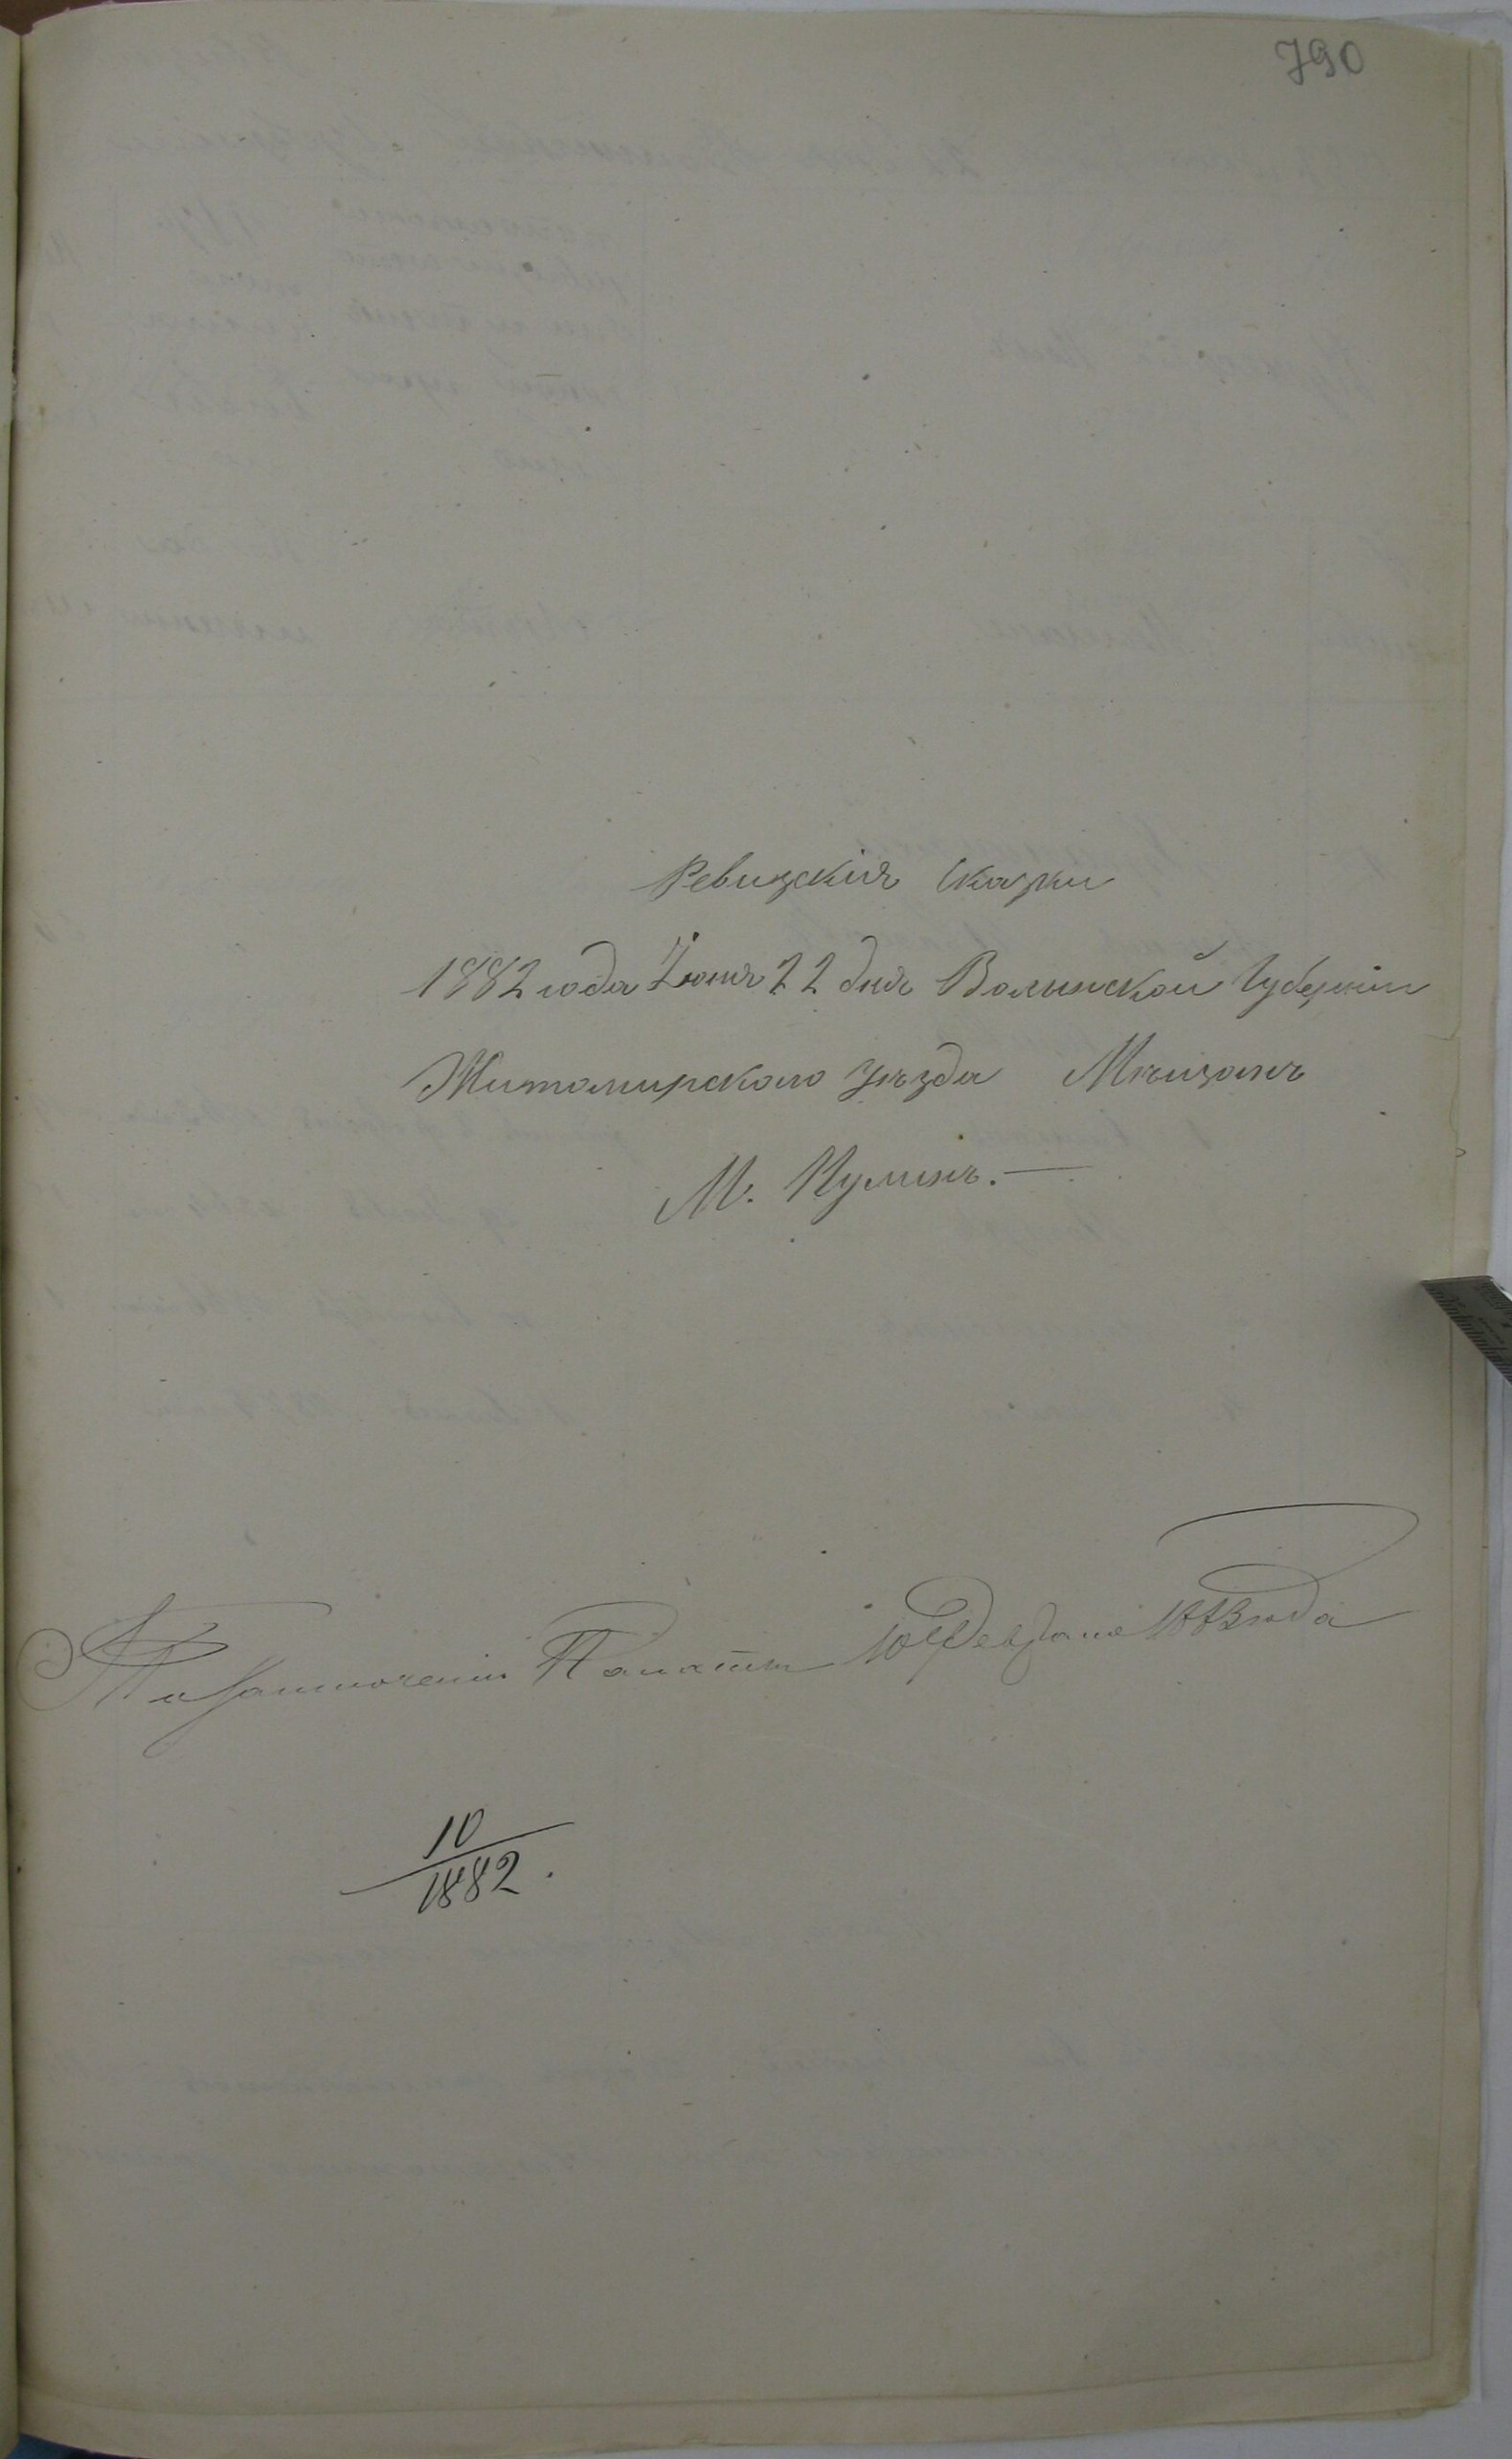 790
Ревизскія сказки
1882 года Іюня 22 дня Волынской Губерніи
Житомирского уѣзда Мѣщанъ
М. Пулинъ.—
По Заключенію Палаты 10 Февраля 1883 года
10
1882.